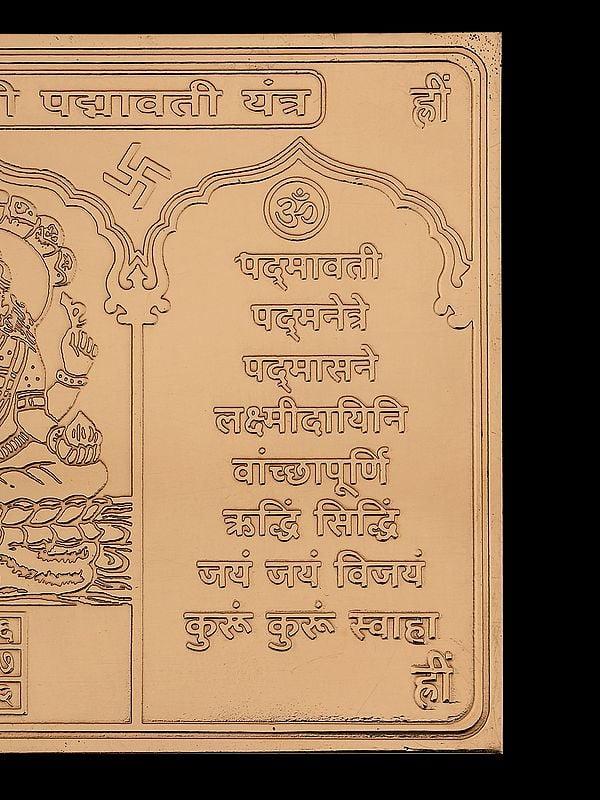 पद्मावती यंत्र
ह्रीं
ॐ
पद्मावती
पद्मनेत्रे
पद्मासने
लक्ष्मीदायिनि
वांच्छापूर्णि
ऋद्धिं सिद्धिं
जयं जयं विजयं
कुरूं कुरूं स्वाहा
ह्रीं
७